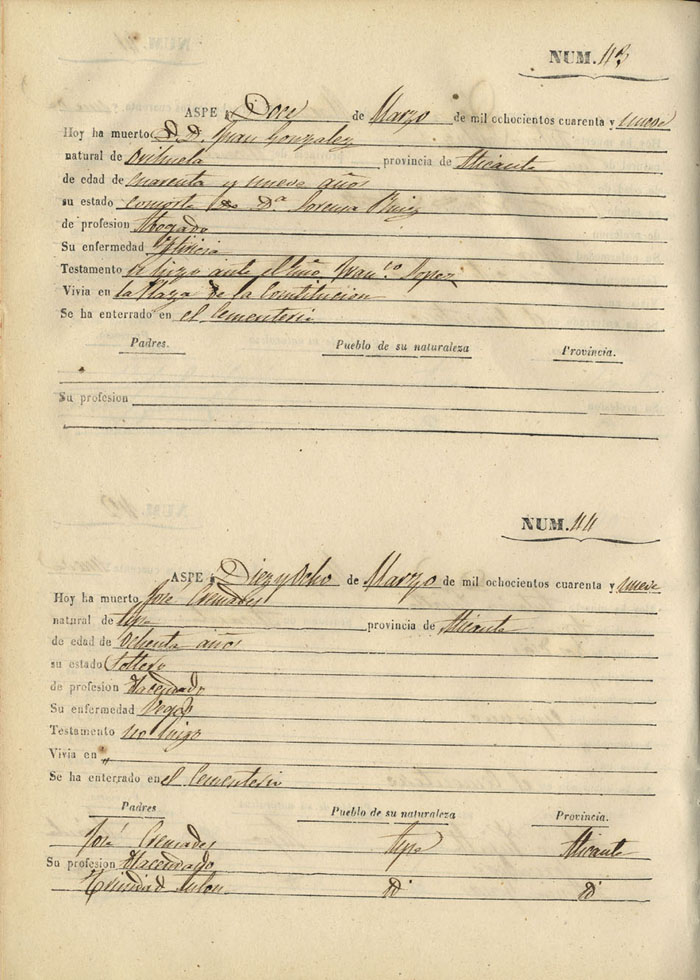 NUM. 43
ASPE á Doce de Marzo de mil ochocientos cuarenta y nueve
Hoy ha muerto D. Juan Gonzalez
natural de Orihuela provincia de Alicante
de edad de cuarenta y nueve años
su estado consorte de Dª Lorenza
de profesion Abogado
Su enfermedad
Testamento lo hizo ante el Franco. Lopez
Vivia en la Plaza de la Constitucion
Se ha enterrado en el Cementerio
Padres. Pueblo de su naturaleza Provincia.
Su profesion
NUM. 44
ASPE á Diez y Ocho de Marzo de mil ochocientos cuarenta y nueve
Hoy ha muerto José Cremades
natural de Aspe provincia de Alicante
de edad de Ochenta años
su estado Soltero
de profesion Hacendado
Su enfermedad Vegez
Testamento no hizo
Vivia en "
Se ha enterrado en el Cementerio
Padres Pueblo de su naturaleza Provincia.
José Cremades Aspe Alicante
Su profesion Hacendado
Trinidad